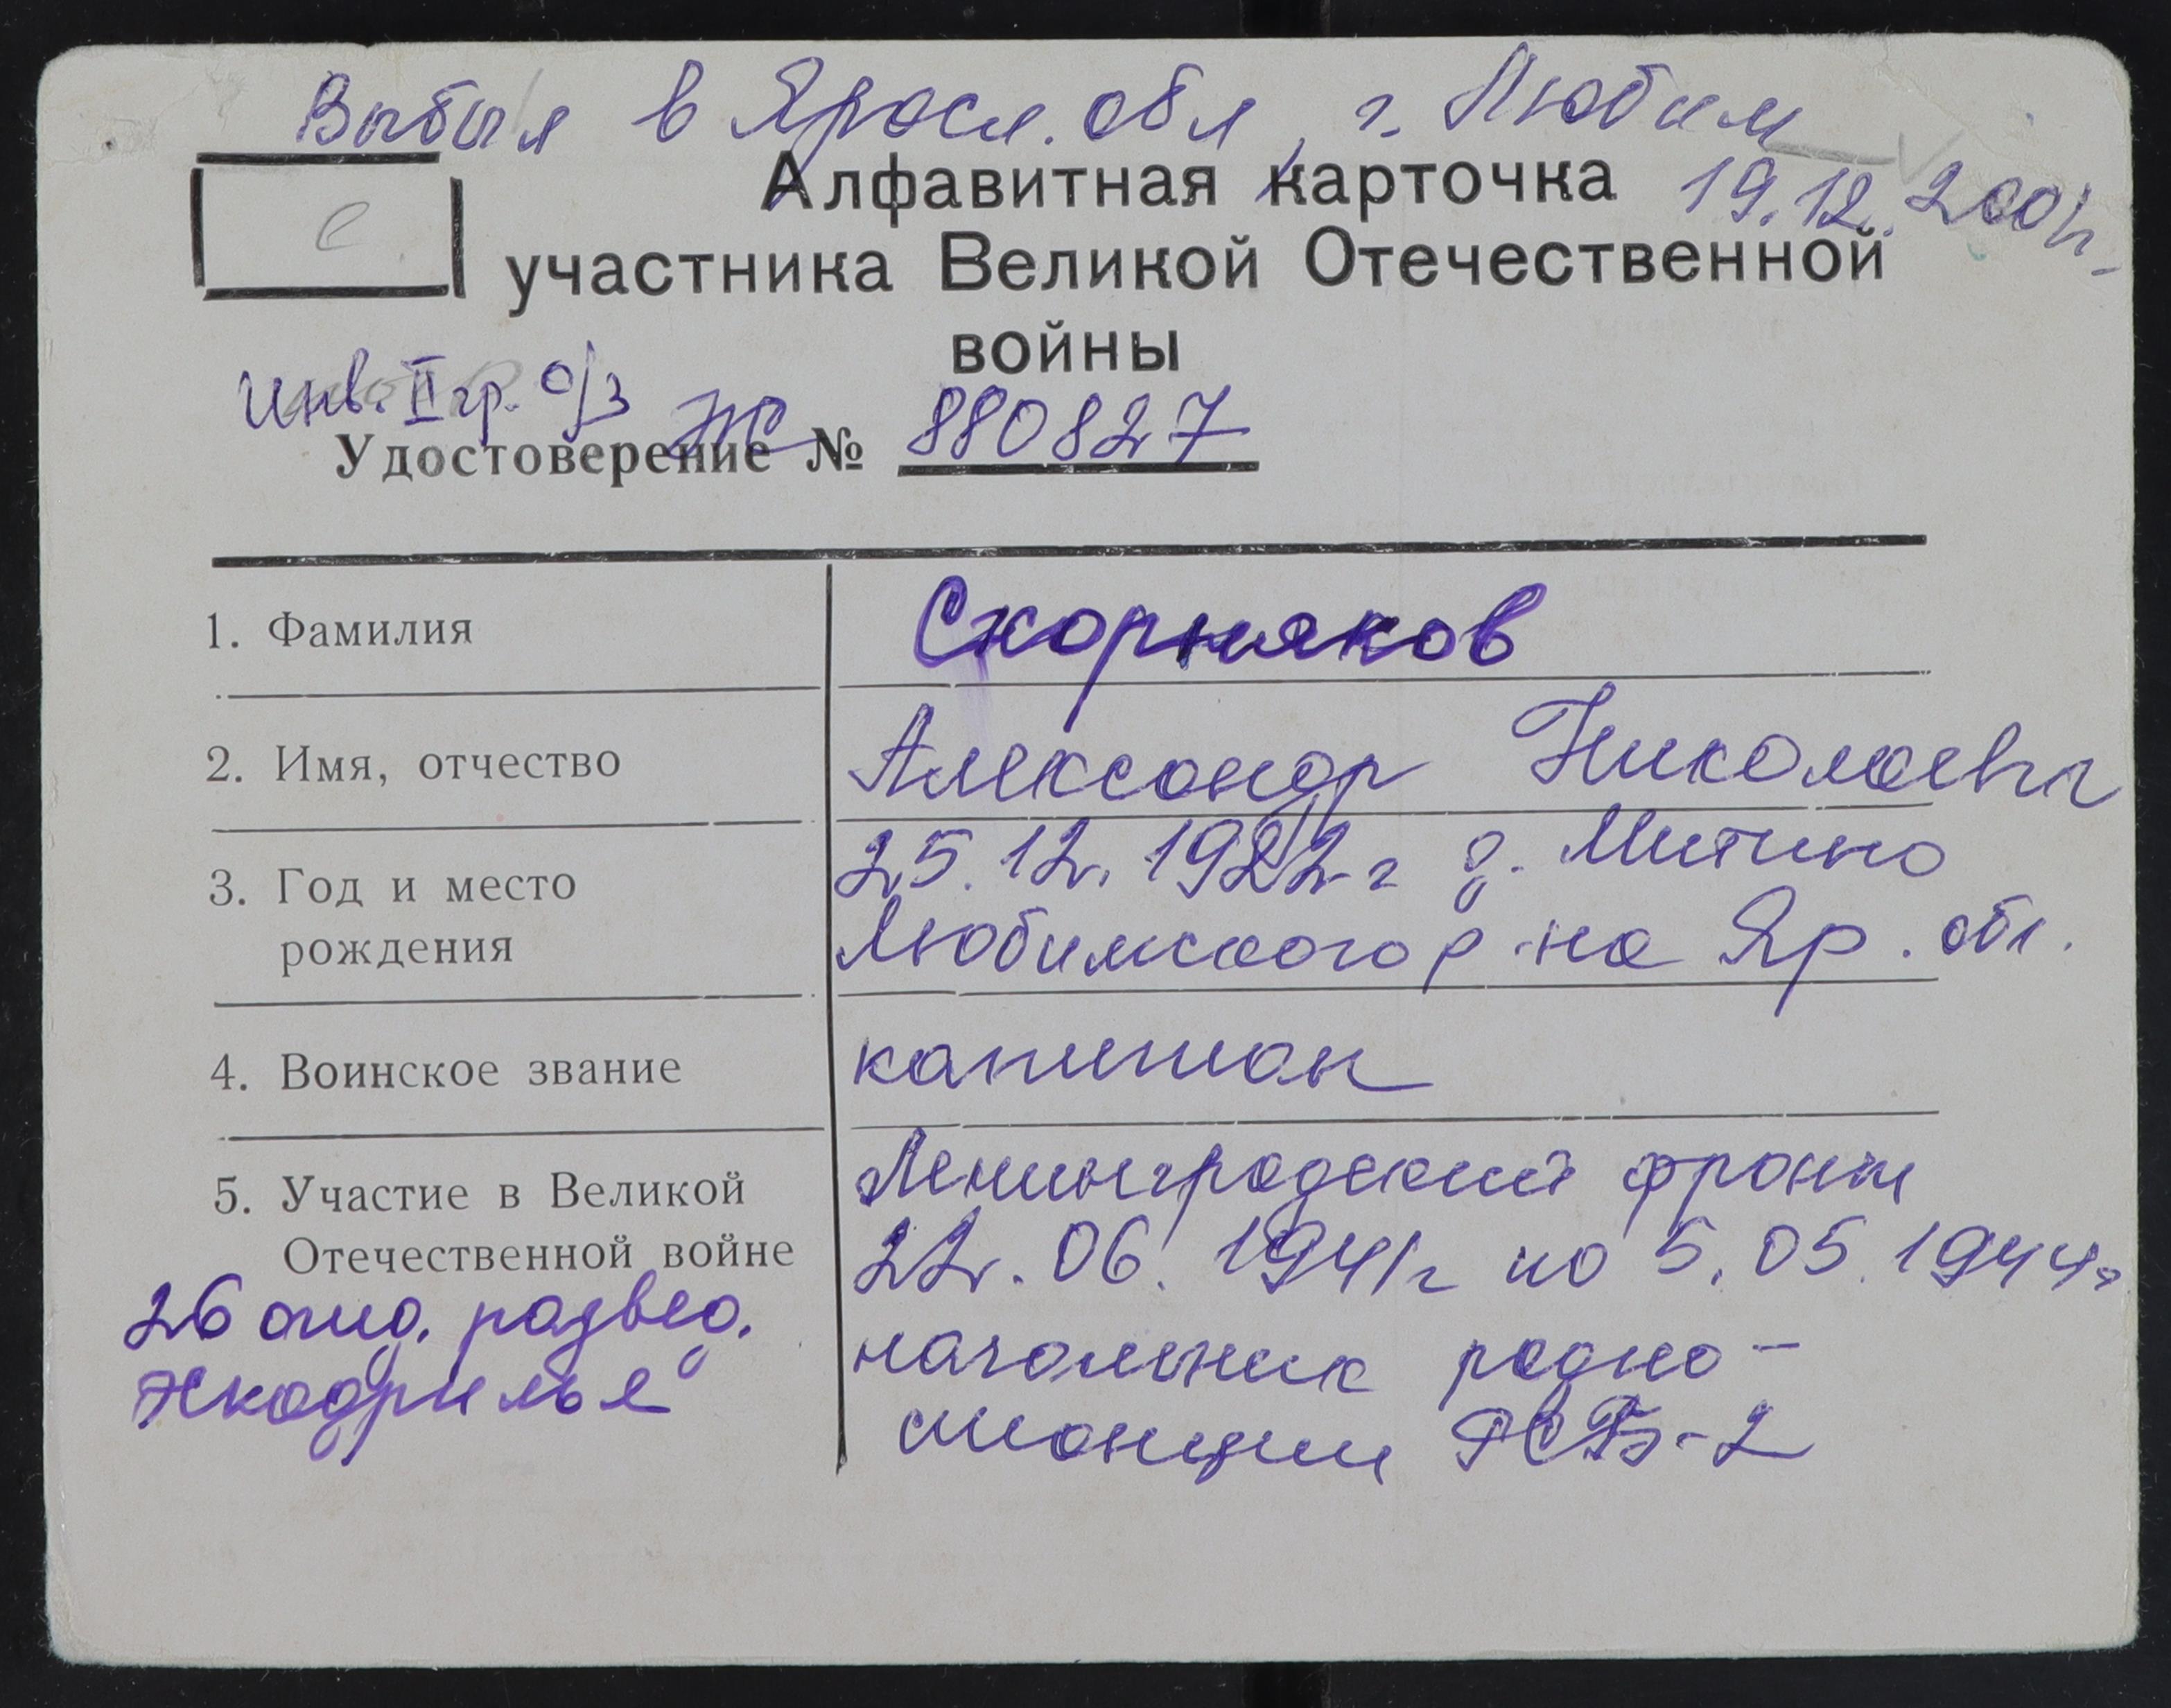 Выбыл в Яросл. обл, г. Любим
19.12.2001г.
с
Алфавитная карточка
участника Великой Отечественной
войны
Инв. II гр. о/з
Удостоверение Ж № 880827
1. Фамилия Скорняков
2. Имя, отчество Александр Николаевич
3. Год и место рождения 25.12.1922г д. Митино
Любимского р-на Яр. обл.
4. Воинское звание капитан
5. Участие в Великой Ленинградский фронт
Отечественной войне 22.06.1941г по 5.05.1944г
26 отд. развед. начальник радио-
эскадрилья станции РСБ-2